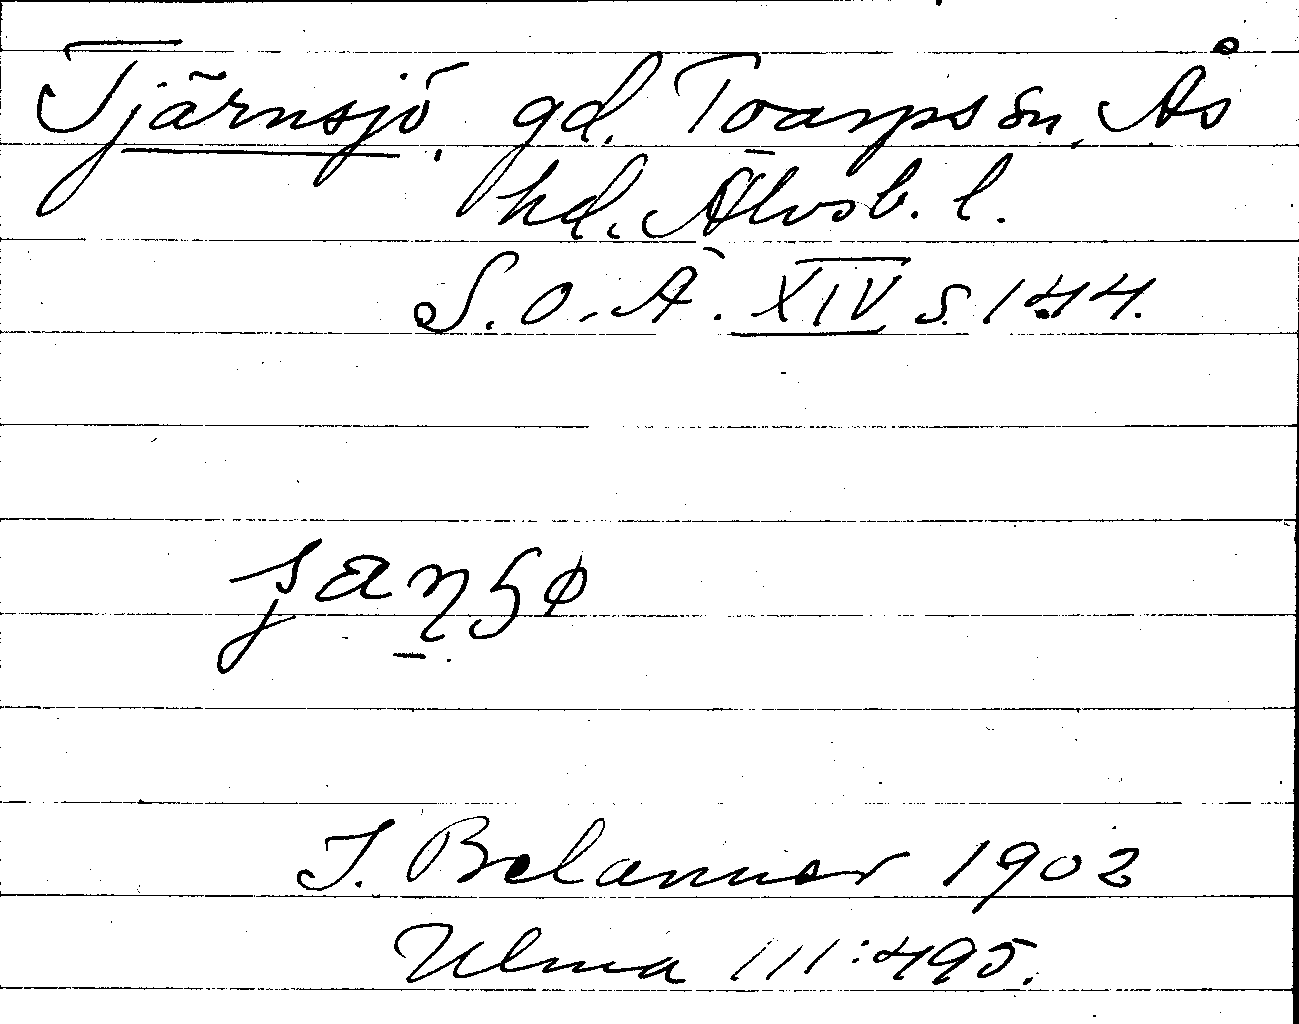 Tjärnsjö, gd. Toarps sn, Ås
hd. Älvsb. l.
S. O. Ä. XIV s. 144.
J. Belanner 1902
Ulma 111:495.